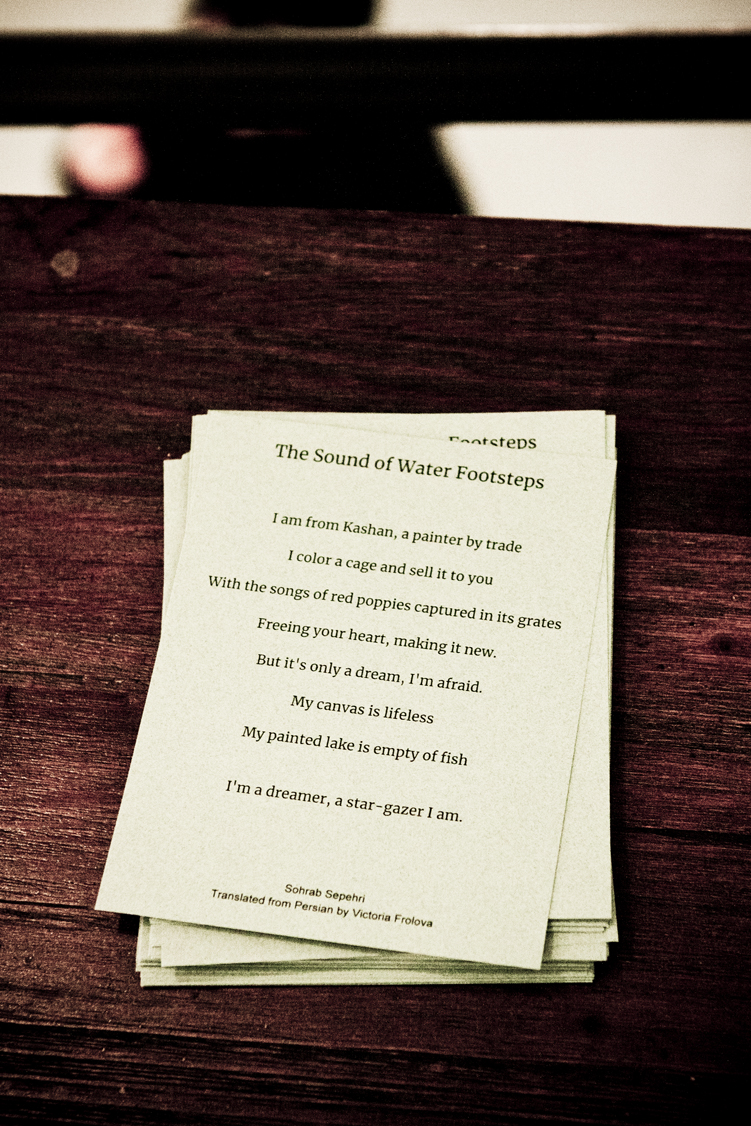 Footsteps
The Sound of Water Footsteps
I am from Kashan, a painter by trade
I color a cage and sell it to you
With the songs of red poppies captured in its grates
Freeing your heart, making it new.
But it's only a dream, I'm afraid.
My canvas is lifeless
My painted lake is empty of fish
I'm a dreamer, a star-gazer I am.
Sohrab Sepehri
Translated from Persian by Victoria Frolova